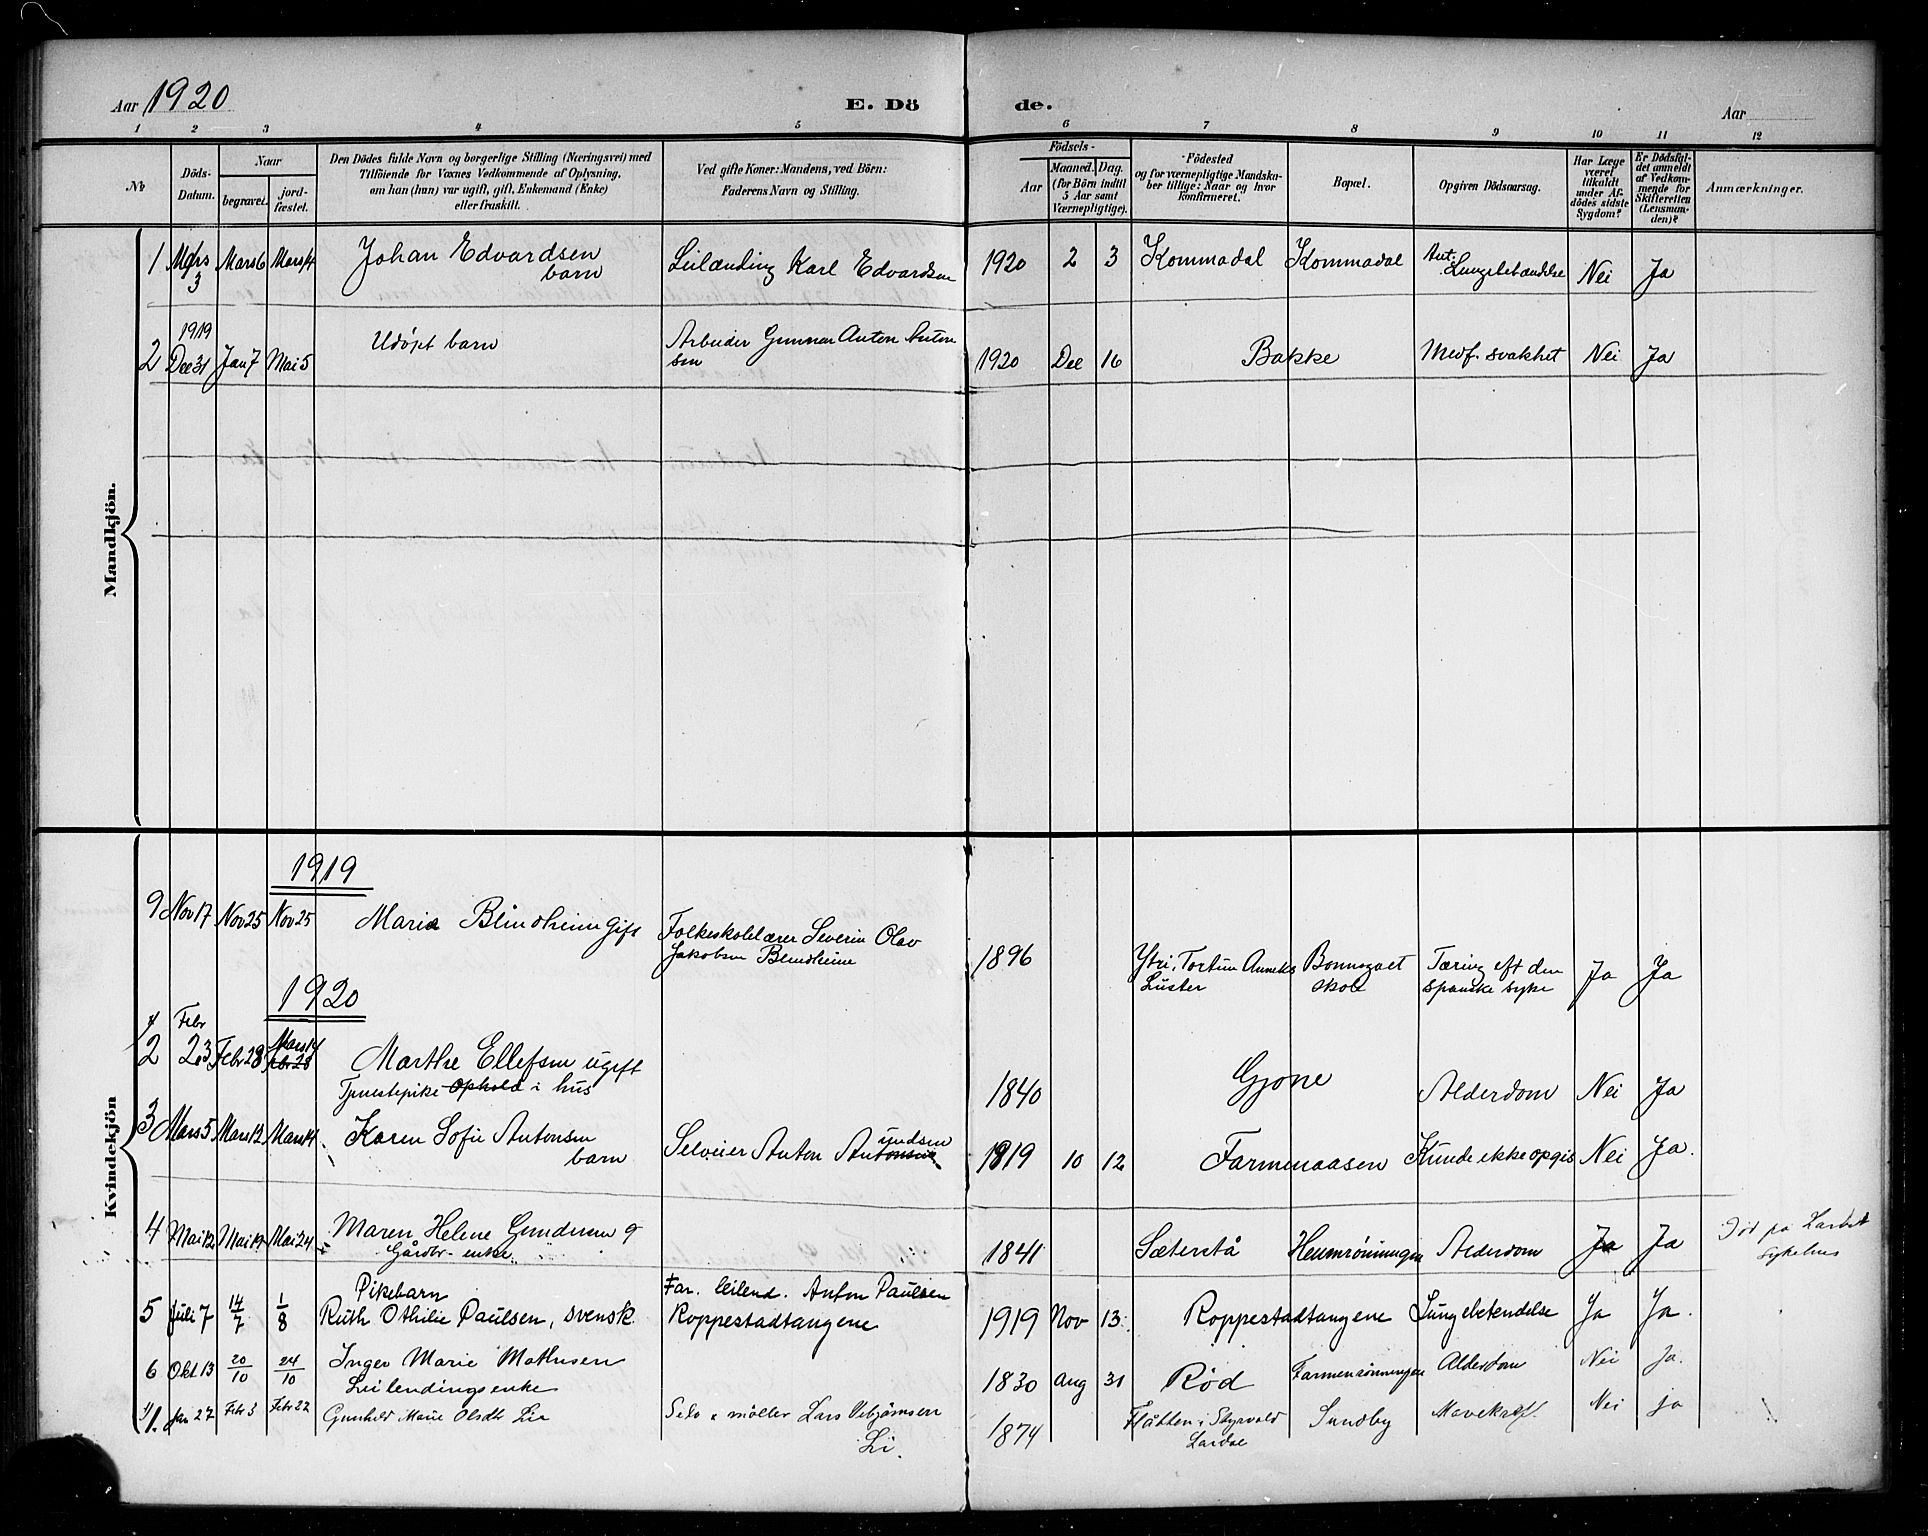 Aar 1920
E. Dö de.
Aar
1 2 3 4 5 6 7 8 9 10 11 12
No
Döds-Datum.
Naar
begravet.
jord-fæstet.
Den Dödes fulde Navn og borgerlige Stilling (Næringsvei) med
Tilföiende for Voxnes Vedkommende af Oplysning,
om han (hun) var ugift, gift, Enkemand (Enke)
eller fraskilt.
Ved gifte Koner: Mandens, ved Börn:
Faderens Navn og Stilling.
Födsels-
Aar
Maaned. Dag.
(for Börn indtil
5 Aar samt
Værnepligtige).
Födested
og for værnepligtige Mandska-
ber tillige: Naar og hvor
konfirmeret.
Bopæl.
Opgiven Dödsaarsag.
Har Læge
været
tilkaldt
under Af-
dödes sidste
Sygdom?
Er Dödsfal-
det anmeldt
af Vedkom-
mende for
Skifteretten
(Lensman-
den)?
Anmærkninger.
Mandkjön.
1 Mars 3 Mars 6 Mars 14 Johan Edvardsen barn Leilænding Karl Edvardsen 1920 2 3 Kommadal Kommadal Ant. Lungebetændelse Nei Ja
2 1919 Dec 31 Jan 7 Mai 5 Udøpt barn Arbeider Gunnar Anton Antonsen 1920 Dec 16 Bakke Medf. svakhet Nei Ja
Kvindekjön
1919
9 Nov 17 Nov 25 Nov 25 Maria Blindheim Gift Folkeskolelærer Severin Olav
Jakobsen Blindheim 1896 Ytri, Tortun Anneks
Luster Bonnegolt
skole Tæring eft den
spanske syke Ja Ja
1920
2 Febr 23 Febr 28 Mars 14 Febr 28 Marthe Ellefsen ugift
Tjenestepike Ophold i hus 1840 Gjone Alderdom Nei Ja
3 Mars 5 Mars 12 Mars 14 Karen Sofie Antonsen
barn Selveier Anton Antonsen undsen 1919 10 12 Farmenaasen Kunde ikke opgis Nei Ja.
4 Mai 12 Mai 19 Mai 24 Maren Helene Gundersen
Gårdbr- enke 1841 Sæterstå Heumrönningen Alderdom Ja Ja Död på Larvik
sykehus
5 Juli 7 14/7 1/8 Pikebarn
Ruth Othilie Paulsen, svensk Far. leilend. Anton Paulsen
Roppestadtangene 1919 Nov 13. Roppestadtangene Lungebetendelse Ja Ja.
6 Okt 13 20/10 24/10 Inger Marie Mathisen
Leilendingsenke 1830 Aug 31 Rød Farmenrönningen Alderdom Nei Ja.
1. Jan 27 Febr 3 Febr 22 Gunhild Marie Olsdt Lie Selv. møller Lars
Li. 1874 Flåtten i Styrvold
Lardal Sundby Mavekræft. Nei ja